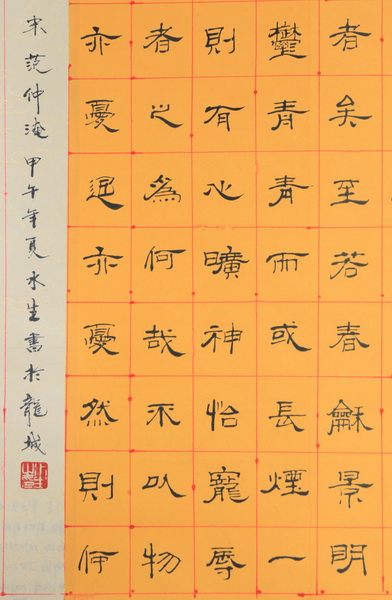 者矣至若春龢景明
鬱青青而或長煙一
則有心曠神怡寵辱
者之為何哉不以物
亦憂退亦憂然則
宋范仲淹甲午年夏水生書於龍城